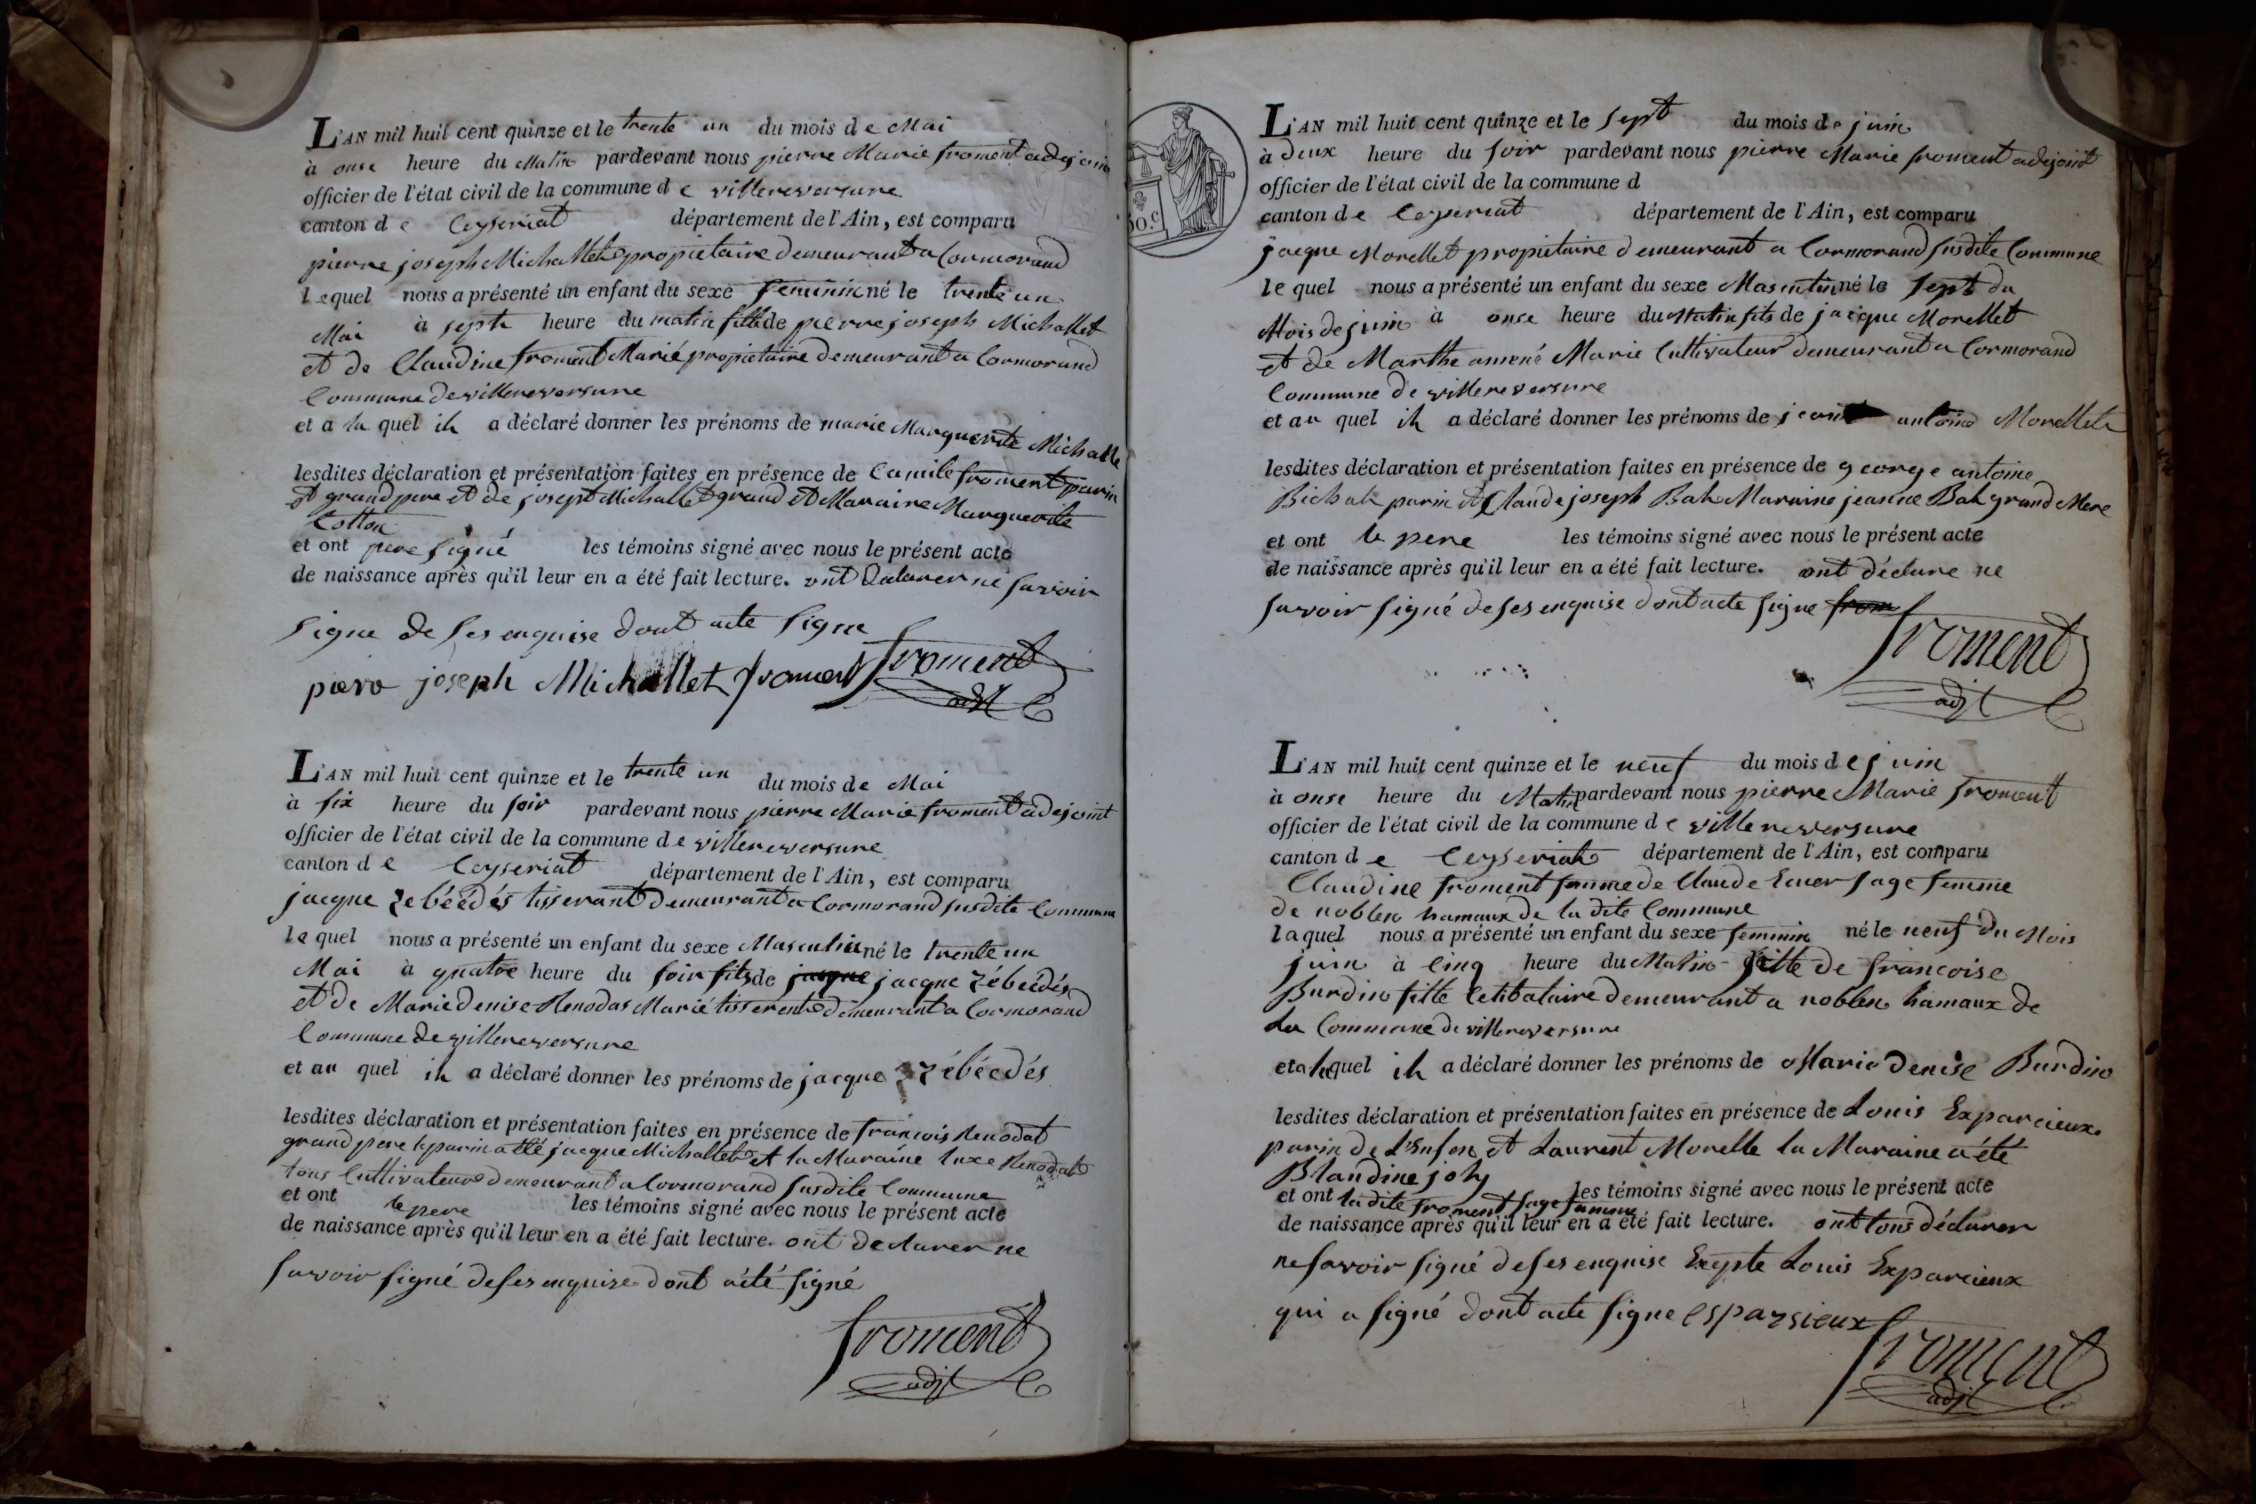 L'AN mil huit cent quinze et le trente un du mois de Mai
à onse heure du Matin pardevant nous pierre Marie froment adejoint
officier de l'état civil de la commune de villereversure
canton de Ceyseriat département de l'Ain, est comparu
pierre joseph Michallet propietaire demeurant a Cormorand
lequel nous a présenté un enfant du sexe feminin né le trente un
Mai à sept heure du matin fille de pierre joseph Michallet
et de Claudine froment Marié propietaire demeurant a Cormorand
Commune de villereversure
et a la quel il a déclaré donner les prénoms de marie Marguerite Michalle
lesdites déclaration et présentation faites en présence de Camile froment parin
et grand pere et de joseph Michallet grand et Maraine Marguerite
Cotton
et ont pere signé les témoins signé avec nous le présent acte
de naissance après qu'il leur en a été fait lecture. ont declarer ne savoir
signe de ses enquise dont acte signe
piere joseph Michallet froment froment
adjt
L'AN mil huit cent quinze et le trente un du mois de Mai
à six heure du soir pardevant nous pierre Marie froment adejoint
officier de l'état civil de la commune de villereversure
canton de Ceyseriat département de l'Ain, est comparu
jacque zébéédés tisserant demeurant a Cormorand susdite Commune
le quel nous a présenté un enfant du sexe Masculin né le trente un
Mai à quatre heure du soir fils de jacque jacque zébéédés
et de Marie denise Renodas Marié tisserent demeurant a Cormorand
Commune de villereversure
et au quel il a déclaré donner les prénoms de jacque zébéédés
lesdites déclaration et présentation faites en présence de francois Renodat
grand pere le parin a été jacque Michallet et la Maraine luxe Renodat
tous Cultivateur demeurant a Cormorand susdite Commune
et ont le pere les témoins signé avec nous le présent acte
de naissance après qu'il leur en a été fait lecture. ont declarer ne
savoir signé de ses enquise dont a été signé
froment
adjt
L'AN mil huit cent quinze et le sept du mois de juin
à deux heure du soir pardevant nous pierre Marie froment adejoint
officier de l'état civil de la commune d
canton de Ceyseriat département de l'Ain, est comparu
jacque Morellet propietaire demeurant a Cormorand susdite Commune
le quel nous a présenté un enfant du sexe Masculin né le sept du
Mois de juin à onse heure du Matin fils de jacque Morellet
et de Marthe amené Marie Cultivateur demeurant a Cormorand
Commune de villereversure
et au quel il a déclaré donner les prénoms de jean antoine Morellet
lesdites déclaration et présentation faites en présence de george antoine
Bichat parin et Claude joseph Bah Maraine jeanne Bah grand Mere
et ont le pere les témoins signé avec nous le présent acte
de naissance après qu'il leur en a été fait lecture. ont déclare ne
savoir signé de ses enquise dont acte signe from
froment
adjt
L'AN mil huit cent quinze et le neuf du mois de juin
à onse heure du Matin pardevant nous pierre Marie froment
officier de l'état civil de la commune de villereversure
canton de Ceyseriat département de l'Ain, est comparu
Claudine froment femme de Claude sage femme
de noblen hamaux de la dite Commune
laquel nous a présenté un enfant du sexe feminin né le neuf du Mois
juin à Cinq heure du Matin fille de francoise
Burdin fille Celibataire demeurant a noblen hamaux de
La Commune de villereversure
et a laquel il a déclaré donner les prénoms de Marie Denise Burdin
lesdites déclaration et présentation faites en présence de Louis Exparcieux
parin de L'enfen et Laurent Morelle la Maraine a été
Blandine joly
et ont la dite froment sage femme les témoins signé avec nous le présent acte
de naissance après qu'il leur en a été fait lecture. ont tous déclarer
ne savoir signé de ses enquise Exepte Louis Exparcieux
qui a signé dont acte signe esparsieux
froment
adjt
50.c